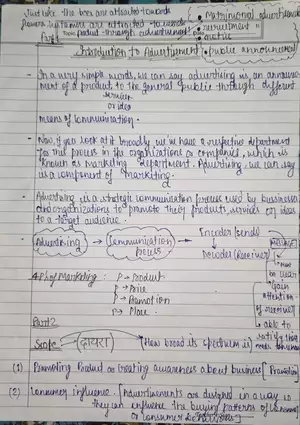 Just like the bees are attracted towards
flowers, customers are attracted towards
product through advertisement
• Matrimonial advertisement
• recruitment
• public announcement
Part 1
Introduction to Advertisement
- In a very simple words, we can say advertising is an announce
ment of a product to the general public through different
services
or idea
means of communication.
- Now, if you look at it broadly we have a respective department
for this process in the organizations or companies, which is
known as marketing department. Advertising, we can say
is a component of marketing.
- Advertising is a strategic communication process used by businesses
and organizations to promote their products, services or ideas
to a target audience.
Advertising → Communication process
Encoder (sender)
Decoder (Receiver)
message
must
be clear
gain
attention
of receiver
able to
satisfy
4 P's of Marketing : P → Product
P → Price
P → Promotion
P → Place
Part 2
Scope → (दायरा) (How broad its spectrum is)
(1) Promoting Product or Creating awareness about business [Promotion]
(2) Consumer influence. [Advertisements are designed in a way so
they can influence the buying patterns of consumers
or consumer behaviours]